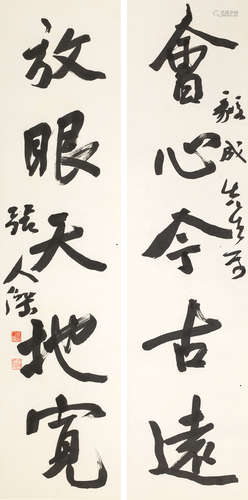 會心今古遠
毅成先生正
放眼天地寬
張人傑